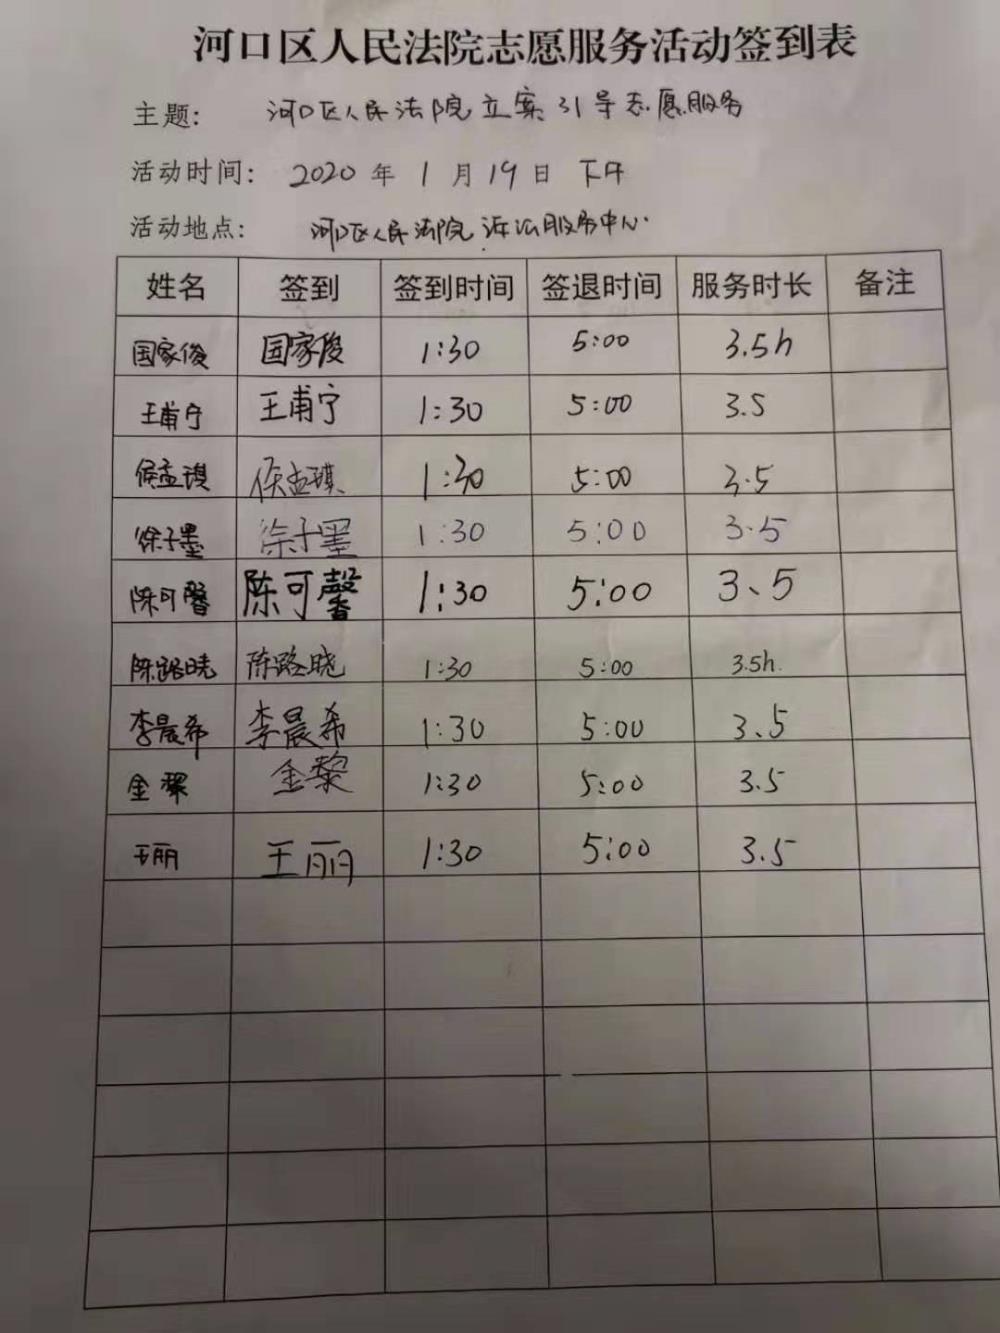 河口区人民法院志愿服务活动签到表
主题: 河口区人民法院立案引导志愿服务
活动时间: 2020 年 1 月 19 日 下午
活动地点: 河口区人民法院诉讼服务中心
姓名 签到 签到时间 签退时间 服务时长 备注
国家俊 国家俊 1:30 5:00 3.5h
王甫宁 王甫宁 1:30 5:00 3.5
侯孟琪 侯孟琪 1:30 5:00 3.5
徐子墨 徐子墨 1:30 5:00 3.5
陈可馨 陈可馨 1:30 5:00 3、5
陈路晓 陈路晓 1:30 5:00 3.5h.
李晨希 李晨希 1:30 5:00 3、5
金黎 金黎 1:30 5:00 3.5
王丽 王丽 1:30 5:00 3.5